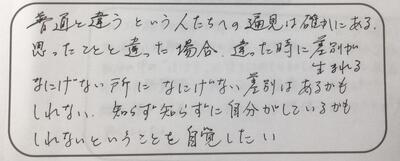 普通と違うという人たちへの偏見は確かにある.
思ったことと違った場合、違った時に差別が
生まれる
なにげない所になにげない差別はあるかも
しれない. 知らず知らずに自分がしているかも
しれないということを自覚したい